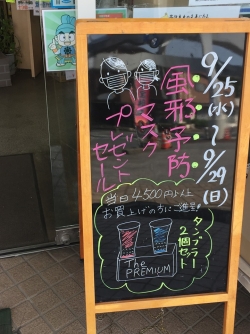 9/25(水)
〜
9/29(日)
風邪予防
マスク
プレゼント
セール
当日4,500円以上
お買上げの方にご進呈!
タンブラー
2個セット
The
PREMIUM